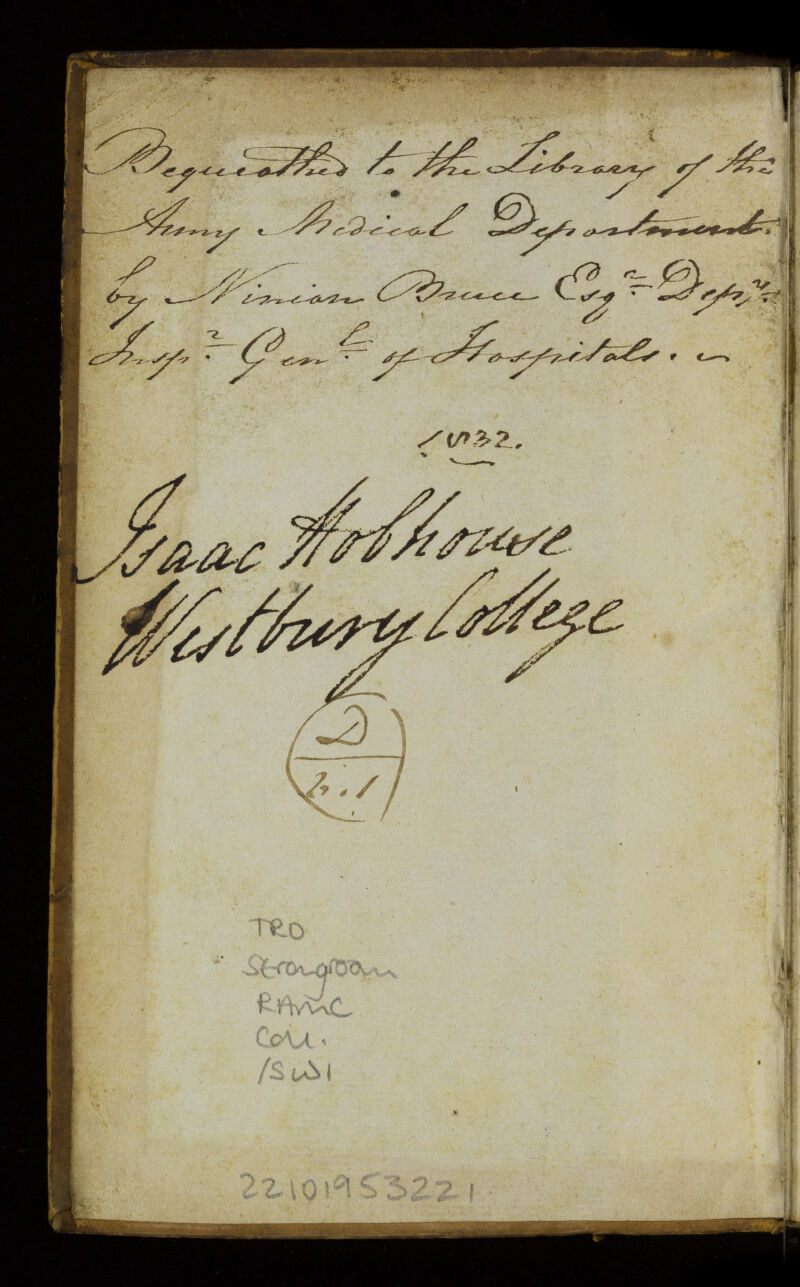 Bequeathed to the Library of the
Army Medical Department.
by Ninian Bruce Esqr. Depy.
Inspr. Genl. of Hospitals.
1832.
Isaac Hobhouse
Westbury College
D
TRO
Strongroom
RAMC
Coll.
/SWI
22101953221